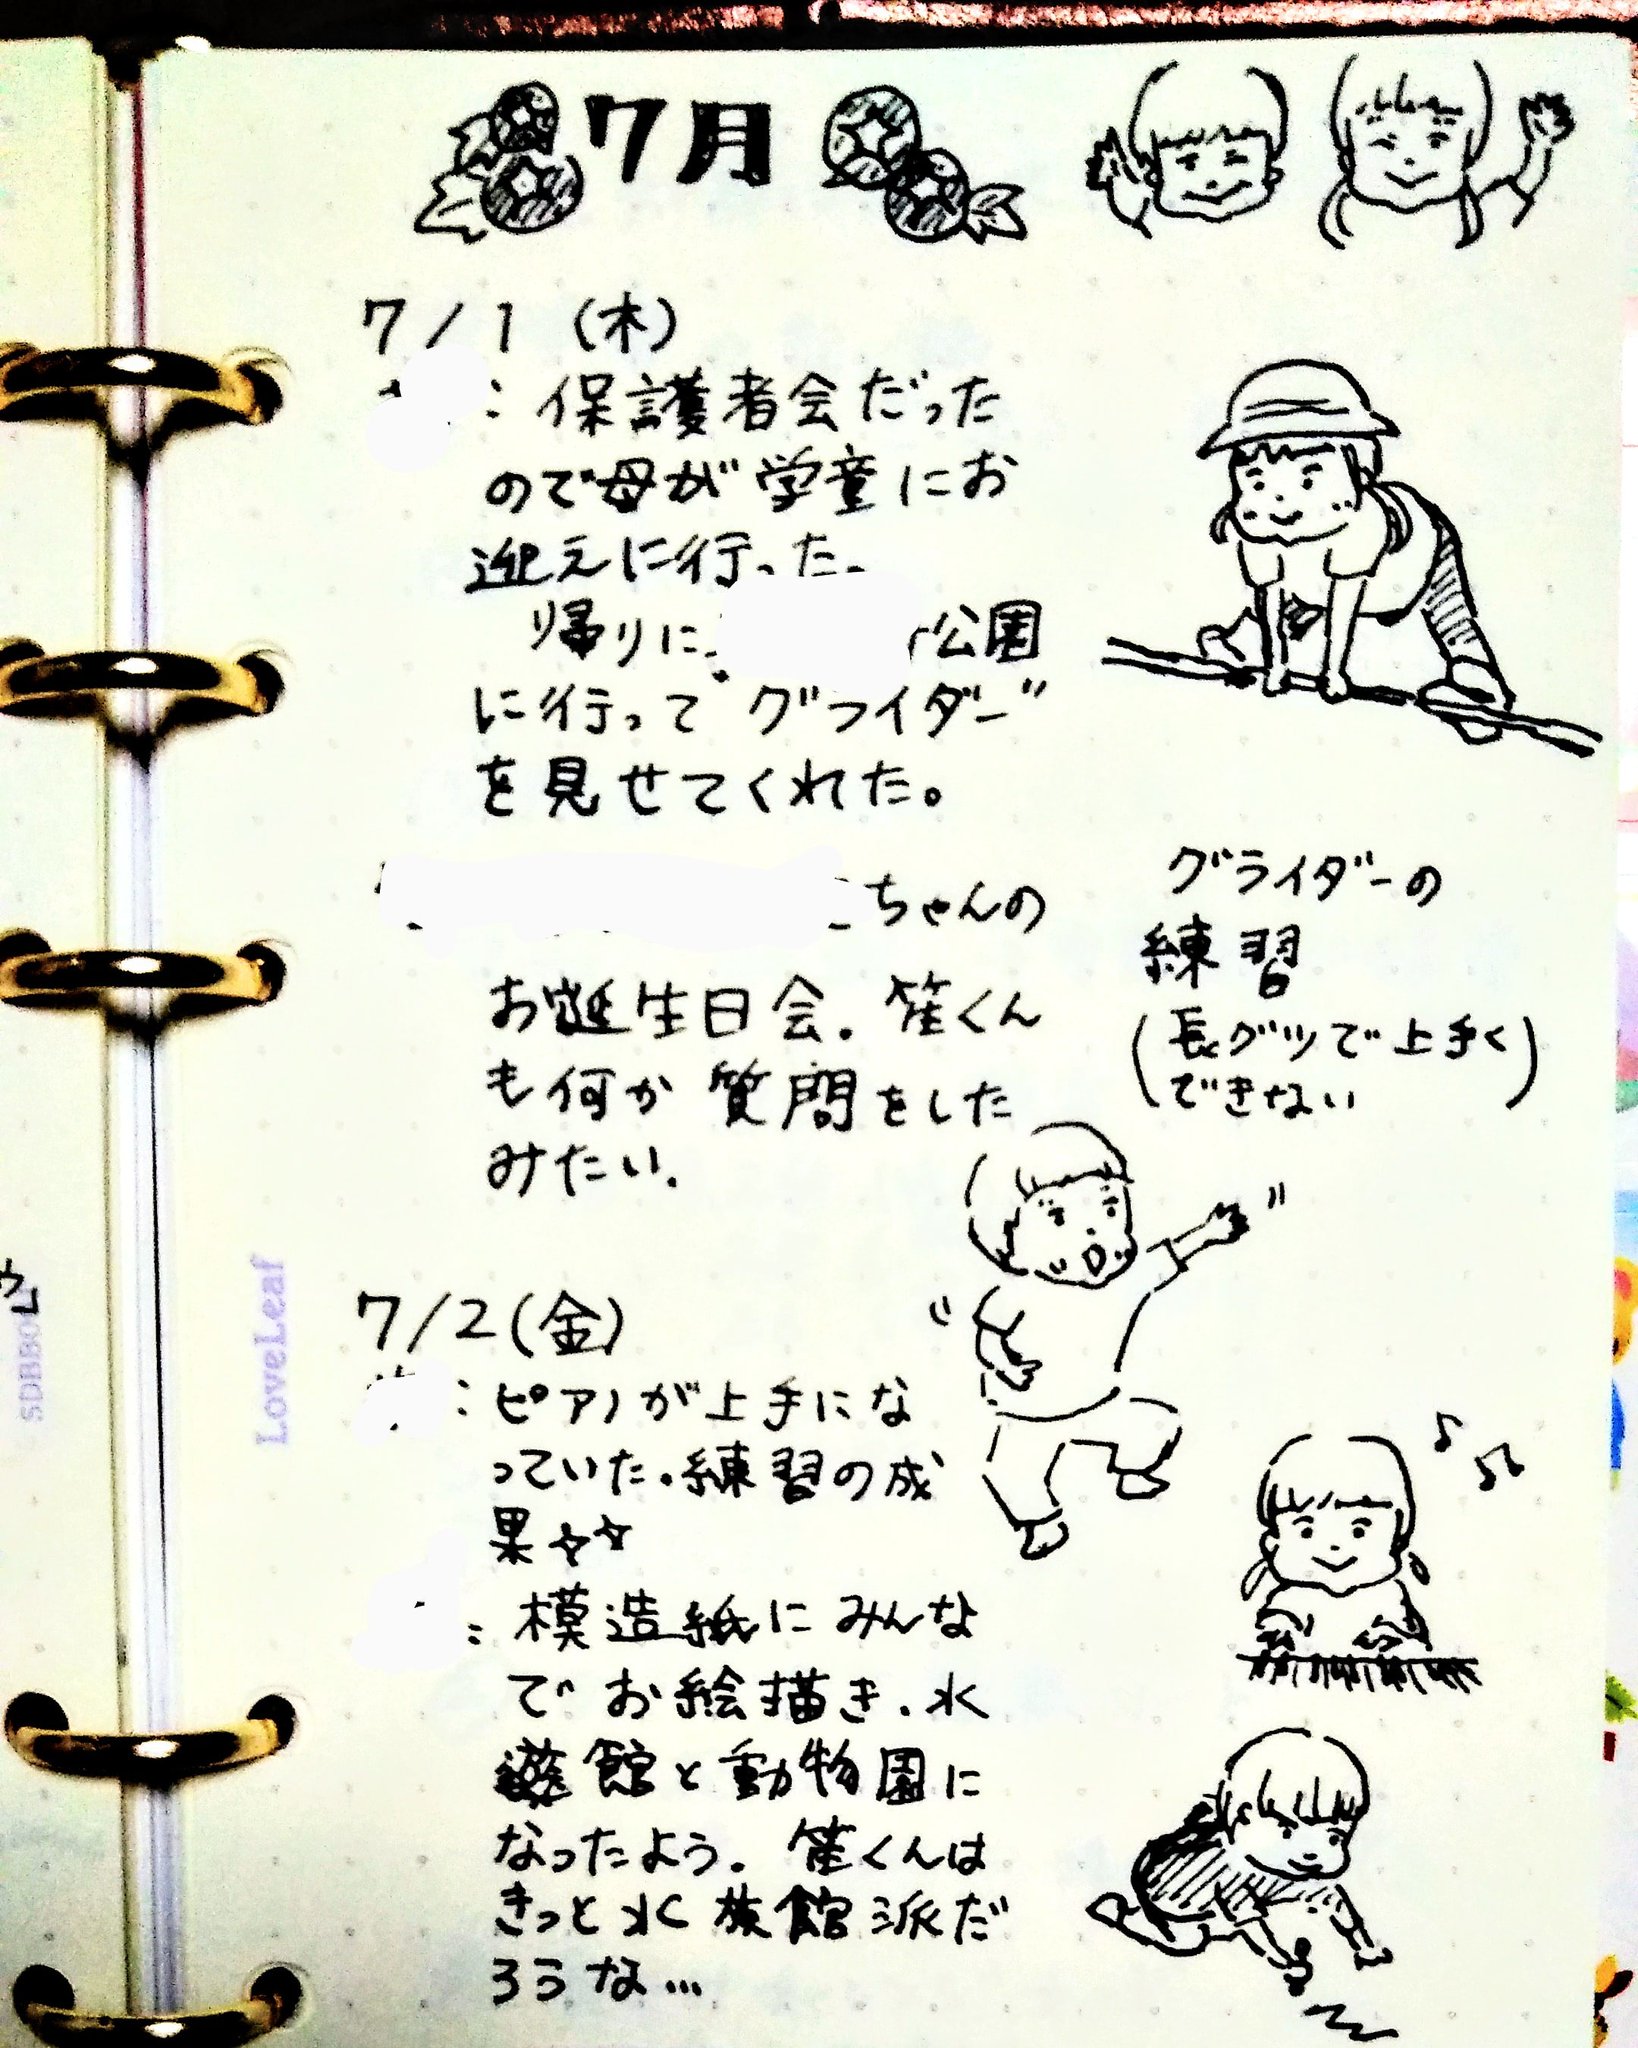 7月
7/1 (木)
: 保護者会だった
ので母が学童にお
迎えに行った。
帰りに 公園
に行って"グライダー"
を見せてくれた。
ちゃんの
お誕生日会. 笙くん
も何か質問をした
みたい.
グライダーの
練習
(長グツで上手く
できない)
7/2(金)
: ピアノが上手にな
っていた。練習の成
果☆☆
: 模造紙にみんな
でお絵描き. 水
館と動物園に
なったよう. 笙くんは
きっと水族館派だ
ろうな…
LoveLeaf